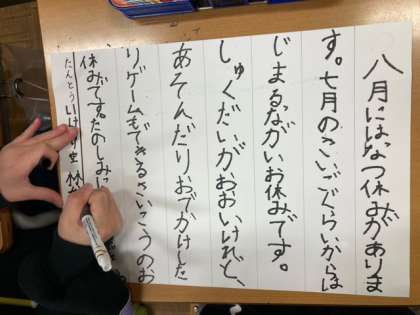 八月にはなつ休みがありま
す。七月のさいごぐらいからは
じまるながいお休みです。
しゅくだいがおおいけれど、
あそんだりおでかけした
りゲームもできるさいこうのお
休みです。たのしみ
たんとう